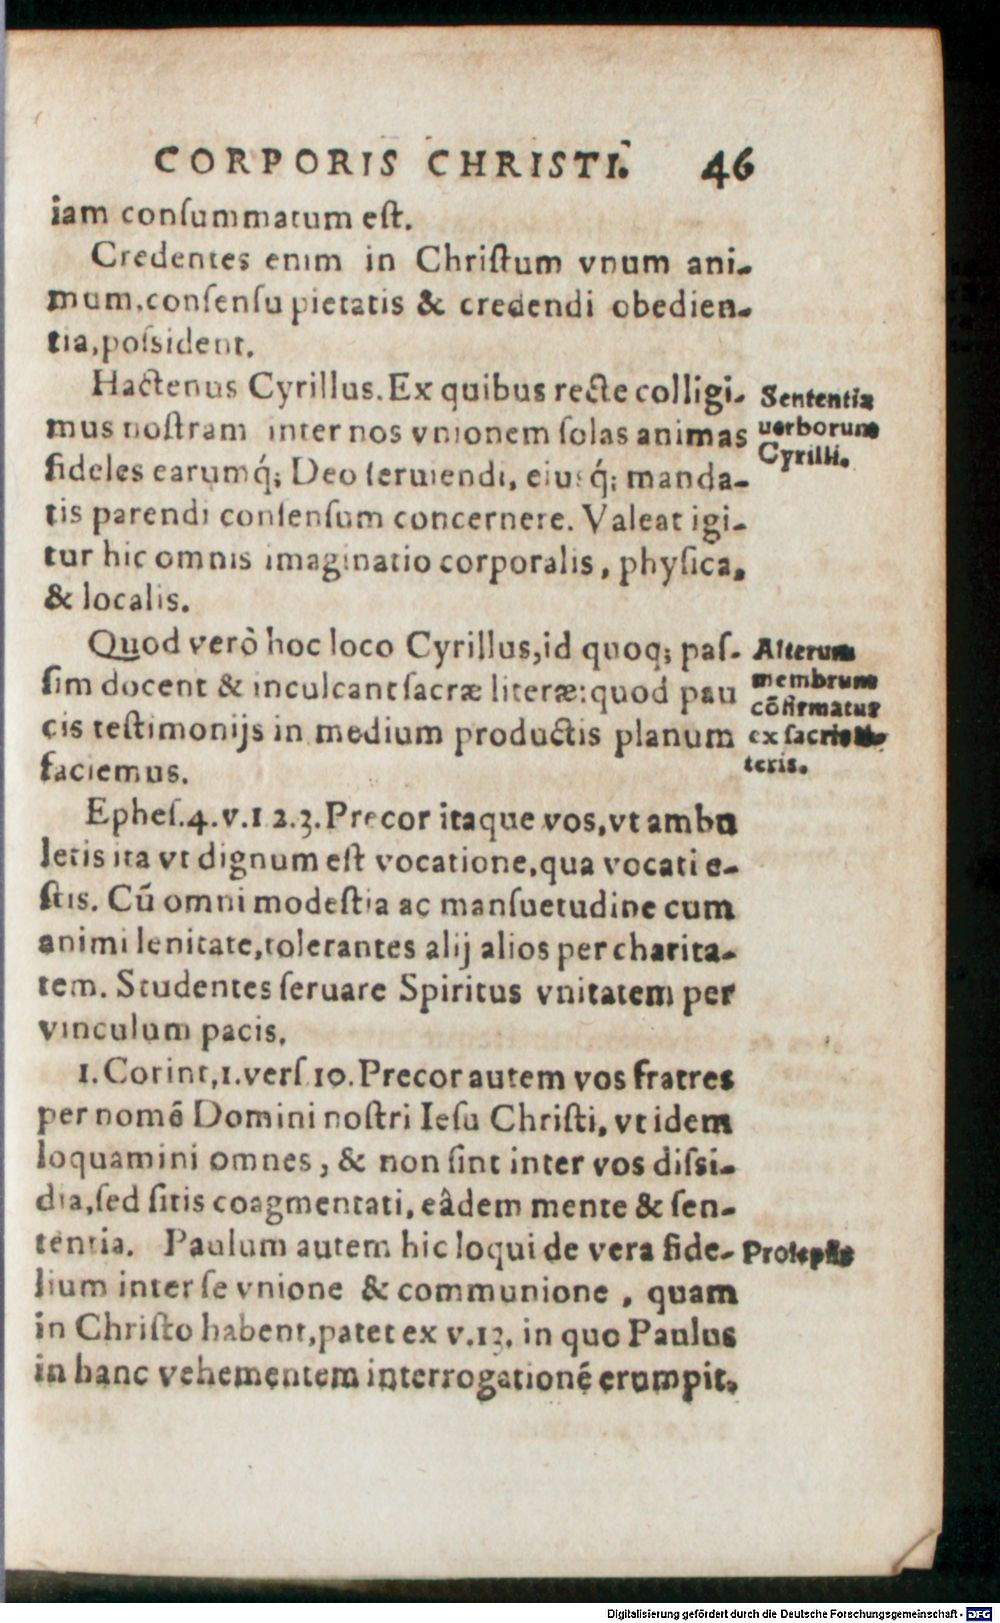 CORPORIS CHRISTI. 46
iam conſummatum eſt.
Credentes enim in Chriſtum vnum ani-
mum, conſenſu pietatis & credendi obedien-
tia, poſsident.
Hactenus Cyrillus. Ex quibus recte colligi-
mus noſtram inter nos vnionem ſolas animas
fideles earumq́; Deo ſeruiendi, eiusq́; manda-
tis parendi conſenſum concernere. Valeat igi-
tur hic omnis imaginatio corporalis, phyſica,
& localis.
Sententia
uerborum
Cyrilli.
Quod verò hoc loco Cyrillus, id quoq; paſ-
ſim docent & inculcant ſacræ literæ: quod pau
cis teſtimonijs in medium productis planum
faciemus.
Alterum
membrum
cõfirmatur
ex ſacris li-
teris.
Epheſ. 4. v. 1 2. 3. Precor itaque vos, vt ambu
letis ita vt dignum eſt vocatione, qua vocati e-
ſtis. Cũ omni modeſtia ac manſuetudine cum
animi lenitate, tolerantes alij alios per charita-
tem. Studentes ſeruare Spiritus vnitatem per
vinculum pacis.
1. Corint, 1. verſ. 10. Precor autem vos fratres
per nomē Domini noſtri Ieſu Chriſti, vt idem
loquamini omnes, & non ſint inter vos diſsi-
dia, ſed ſitis coagmentati, eâdem mente & ſen-
tentia. Paulum autem hic loqui de vera fide-
lium inter ſe vnione & communione, quam
in Chriſto habent, patet ex v. 13. in quo Paulus
in hanc vehementem interrogationē erumpit.
Prolepſis
Digitalisierung gefördert durch die Deutsche Forschungsgemeinschaft - DFG